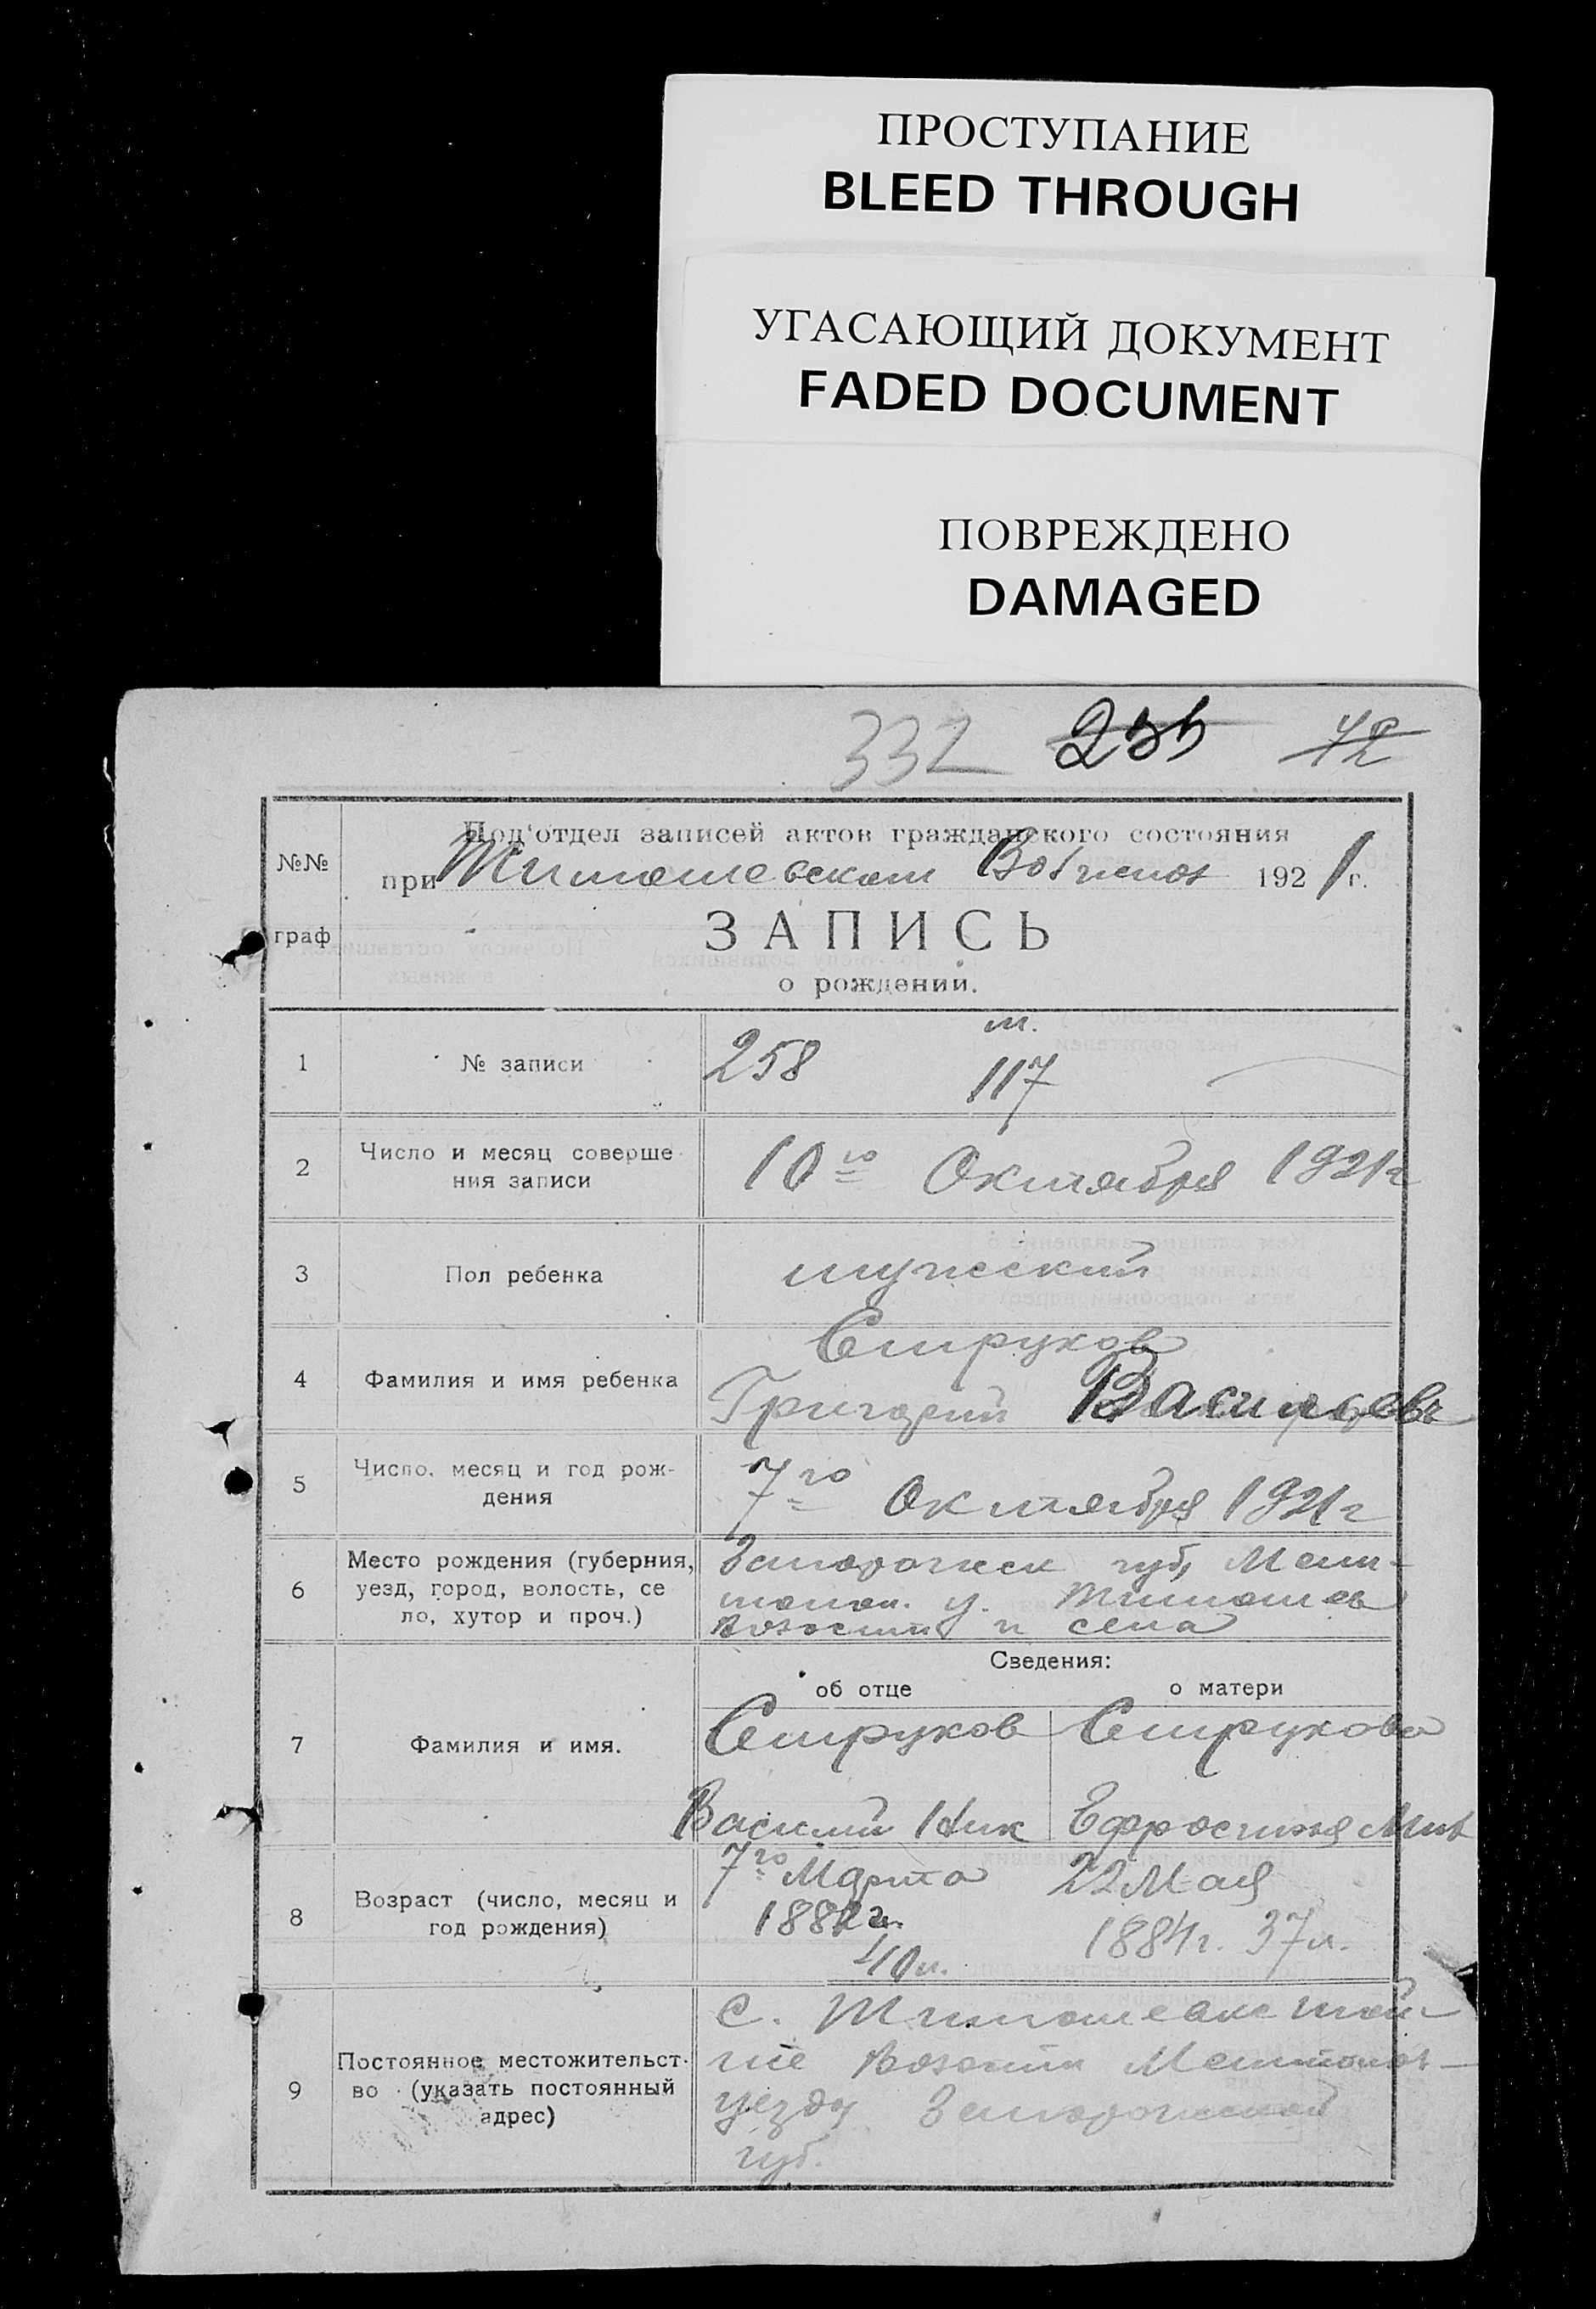 ПРОСТУПАНИЕ
BLEED THROUGH
УГАСАЮЩИЙ ДОКУМЕНТ
FADED DOCUMENT
ПОВРЕЖДЕНО
DAMAGED
332
№№ граф
Под'отдел записей актов гражданского состояния
при Тимошевском 1921 г.
ЗАПИСЬ
о рождении.
1 № записи 258 м. 117
2 Число и месяц соверше
ния записи 10го Октября 1921г
3 Пол ребенка мужеский
4 Фамилия и имя ребенка Струков
Григорий Васильевъ
5 Число, месяц и год рож-
дения 7го Октября 1921г
6 Место рождения (губерния,
уезд, город, волость, се
ло, хутор и проч.)
губ, Мели-
топол. у. Тимошев
волости и села
Сведения:
об отце о матери
7 Фамилия и имя. Струков Струкова
Василий Ник Ефросиния
8 Возраст (число, месяц и
год рождения)
7го Марта 22 Мая
1884г. 37л.
40л.
9 Постоянное местожительст-
во (указать постоянный
адрес)
с.
уезда Запорожской
губ.